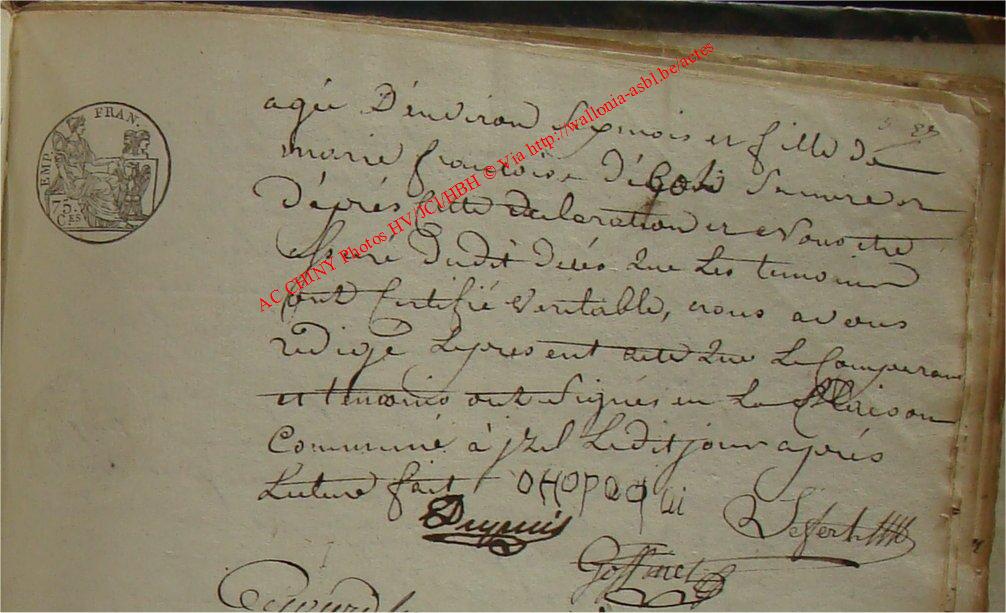 EMP. FRAN.
75. C.ES
AC CHINY Photos HV/JCI/HBH © Via http://wallonia-asbl.be/actes
agée D'environ mois et fille de
marie françoise
D'éprés Cette declaration et Nous etre
Assuré Dudit Décés que Les temoins
ont Certifié veritable, nous avons
redigé Lepresent acte que Le Comparant
et temoins ont Signés en La Maison
Commune à jzel Ledit jour aprés
Lecture fait
Dupuis
Goffinet